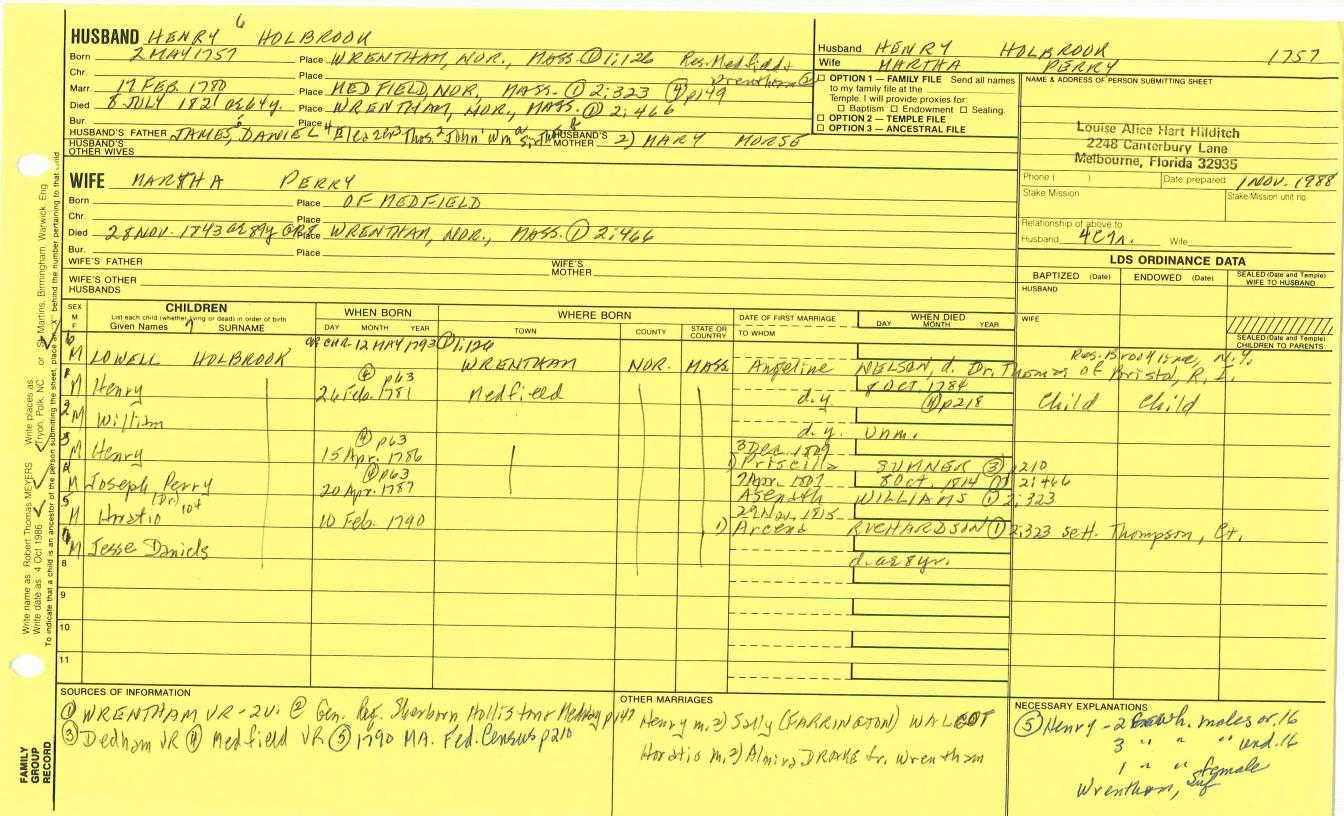 HUSBAND HENRY 6 HOLBROOK
Born 2 MAY 1757 Place WRENTHAM, NOR., MASS. ① 1:126 Res. Medfield &
Chr. Place Wrentham ②
Marr 17 FEB. 1780 Place MEDFIELD, NOR, MASS. ① 2:323 ④ p149
Died 8 JULY 1821 ae 64y. Place WRENTHAM, NOR., MASS. ① 2:466
Bur. Place
HUSBAND'S FATHER JAMES, DANIEL 4 Thos. 2 John HUSBAND'S MOTHER 2) MARY MORSE
HUSBAND'S OTHER WIVES
Husband HENRY HOLBROOK 1757
Wife MARTHA PERRY
☐ OPTION 1 — FAMILY FILE Send all names
to my family file at the
Temple. I will provide proxies for:
☐ Baptism ☐ Endowment ☐ Sealing.
☐ OPTION 2 — TEMPLE FILE
☐ OPTION 3 — ANCESTRAL FILE
NAME & ADDRESS OF PERSON SUBMITTING SHEET
Louise Alice Hart Hilditch
2248 Canterbury Lane
Melbourne, Florida 32935
Phone ( ) Date prepared 1 NOV. 1988
Stake Mission Stake-Mission unit no.
Relationship of above to
Husband 4C Wife
WIFE MARTHA PERRY
Born Place OF MEDFIELD
Chr. Place
Died 28 NOV. 1843 ae 84y Place WRENTHAM, NOR., MASS. ① 2:466
Bur. Place
WIFE'S FATHER WIFE'S MOTHER
WIFE'S OTHER HUSBANDS
LDS ORDINANCE DATA
BAPTIZED (Date) ENDOWED (Date) SEALED (Date and Temple) WIFE TO HUSBAND
HUSBAND
WIFE
SEALED (Date and Temple) CHILDREN TO PARENTS
SEX M F
CHILDREN
List each child (whether living or dead) in order of birth
Given Names 7 SURNAME
WHEN BORN
DAY MONTH YEAR
WHERE BORN
TOWN COUNTY STATE OR COUNTRY
DATE OF FIRST MARRIAGE
TO WHOM
WHEN DIED
DAY MONTH YEAR
6 M LOWELL HOLBROOK CHR. 12 MAY 1793 ① 1:126 WRENTHAM NOR. MASS Angeline NELSON, d. Dr. Thomas of Bristol, R.I. Res. Brookline, N.Y.
1 M Henry ④ p63 26 Feb. 1781 Medfield d.y. 8 OCT. 1784 ④ p218 Child Child
2 M William d.y. unm.
3 M Henry ④ p63 15 Apr. 1786 3 Dec. 1809 1) Priscilla SUMNER ③ p210
4 M Joseph Perry ④ p63 20 Apr. 1787 7 Apr. 1807 Asenath WILLIAMS ① 2:323 8 Oct. 1814 ① 2:466
5 M Horatio (Dr) 104 10 Feb. 1790 29 Nov. 1815 1) RICHARDSON ① 2:323 sett. Thompson, Ct.
M Jesse Daniels d. ae 8 yr.
8
9
10
11
SOURCES OF INFORMATION
① WRENTHAM VR - 2v. ② Gen. Reg. Sherborn Holliston & Medway p147
③ Dedham VR ④ Medfield VR ⑤ 1790 MA. Fed. Census p210
OTHER MARRIAGES
Henry m. 2) Sally (FARRINGTON) WALCOT
Horatio m. 2) Almira DRAKE Wrentham
NECESSARY EXPLANATIONS
⑤ Henry - 2 wh. males or. 16
3 " " " und. 16
1 " " female
Wrentham, Suf
Write name as Robert Thomas MEYERS Write places as Tryon, Polk, NC or St Martins, Birmingham, Warwick, Eng
Write date as: 4 Oct 1986
To indicate that a child is an ancestor of the person submitting the sheet, place an "X" behind the number pertaining to that child
FAMILY
GROUP
RECORD